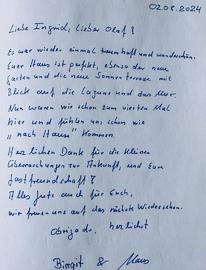 02.08.2024
Liebe Ingrid, Lieber Olaf!
Es war wieder einmal traumhaft und wunderschön.
Euer Haus ist perfekt, ebenso der neue
Garten und die neue Sonnenterrasse mit
Blick auf die Lagune und das Meer.
Nun waren wir schon zum vierten Mal
hier und fühlen uns schon wie
"nach Hause" kommen.
Herzlichen Dank für die kleinen
Überraschungen zur Ankunft, und Eure
Gastfreundschaft!
Alles Gute auch für Euch,
wir freuen uns auf das nächste Wiedersehen.
Obrigado, herzlichst
Birgit &